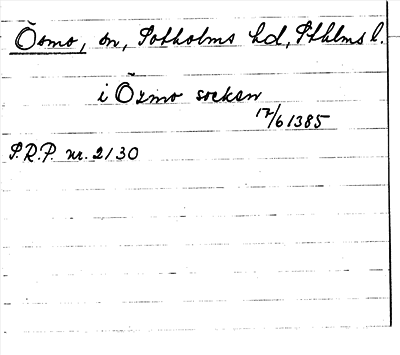 Ösmo, sn, Sotholms hd, Sthlms l.
i Özmo socken
17/6 1385
S.R.P. nr. 2130